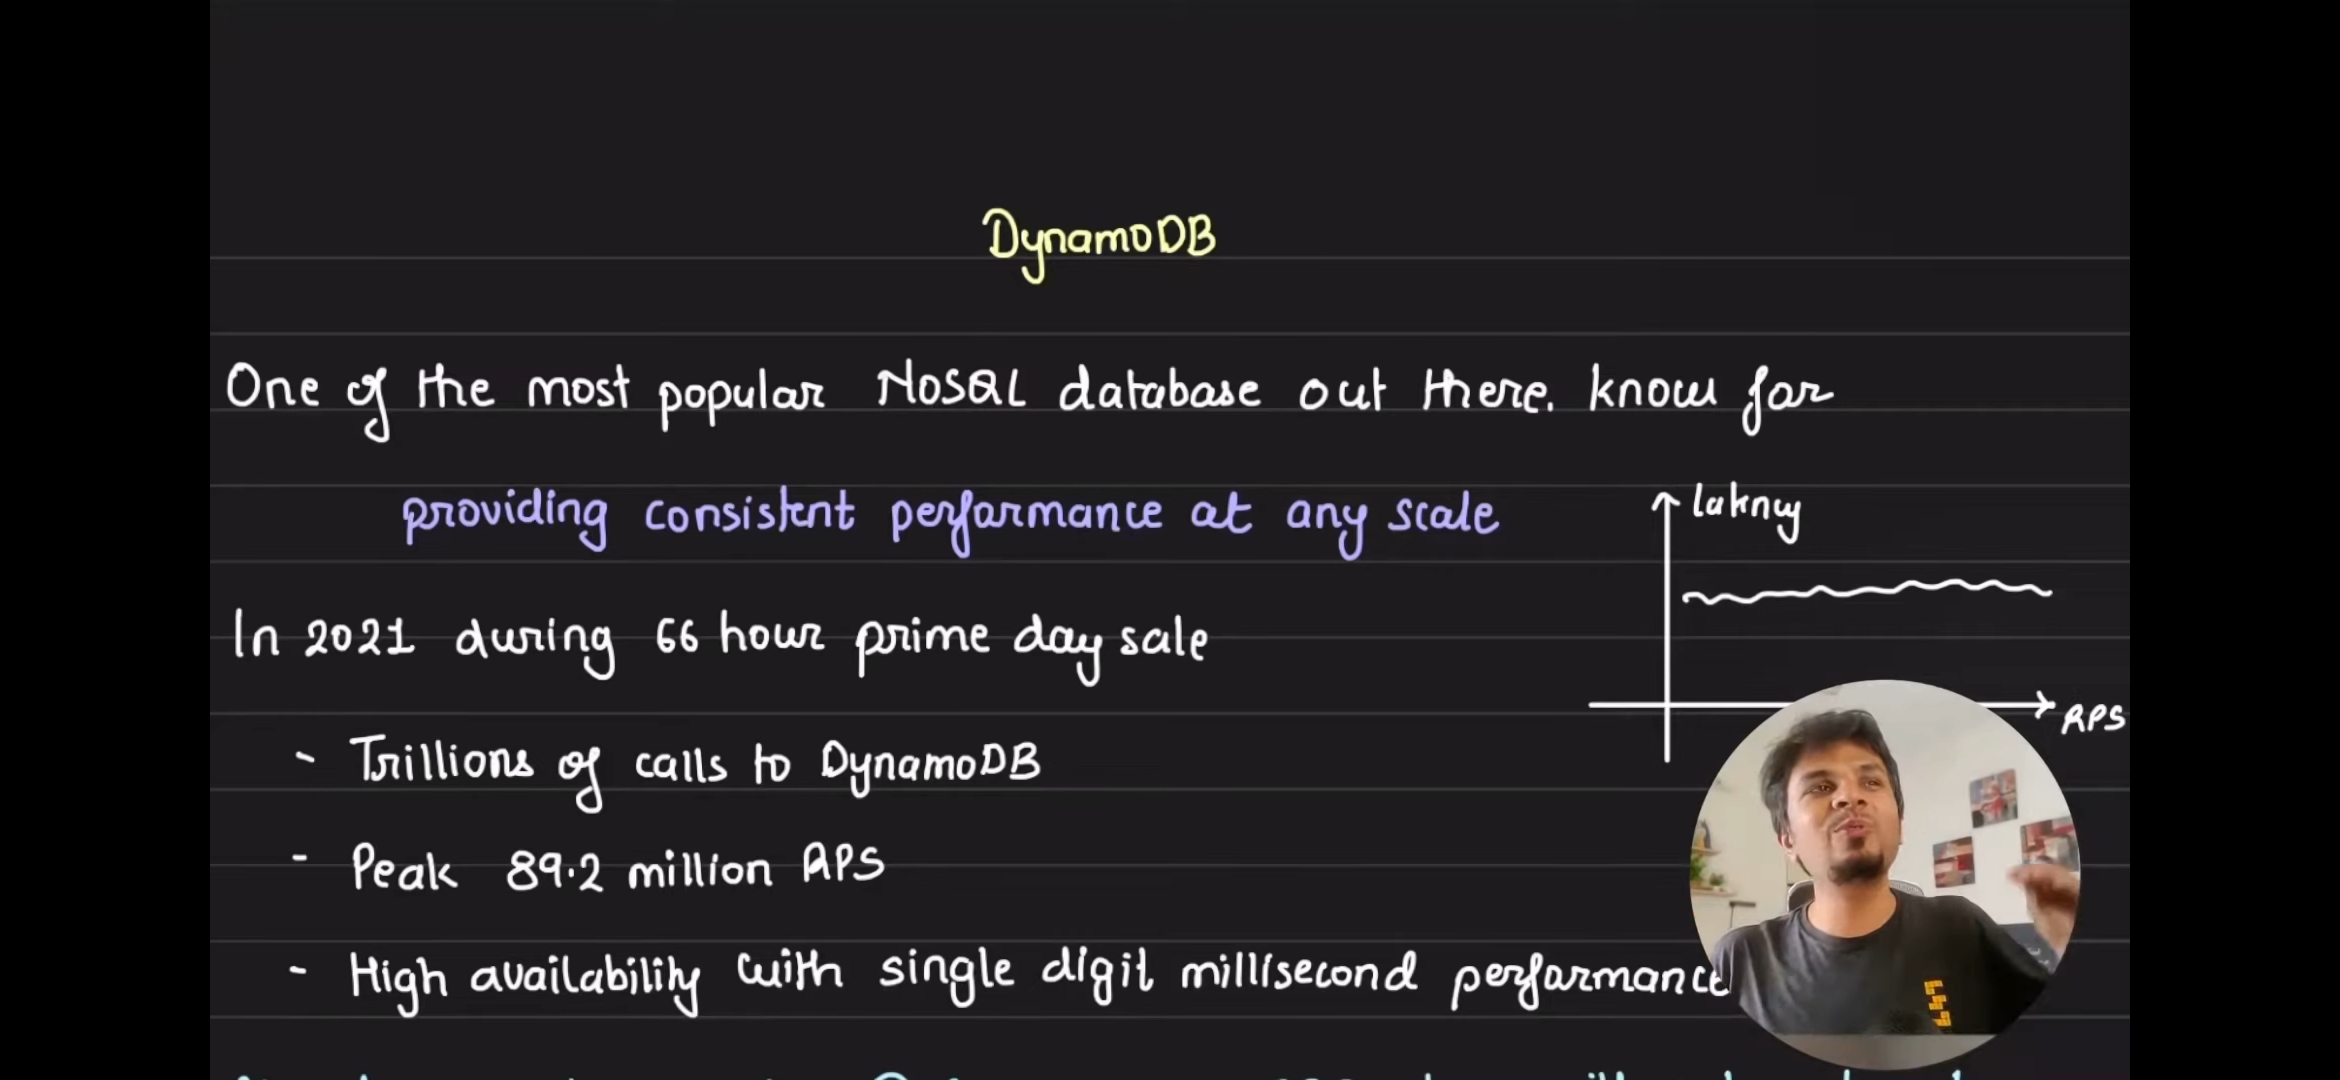 DynamoDB
One of the most popular NoSQL database out there. know for
providing consistent performance at any scale
latency
In 2021 during 66 hour prime day sale
RPS
- Trillions of calls to DynamoDB
- Peak 89.2 million RPS
- High availability with single digit millisecond performance